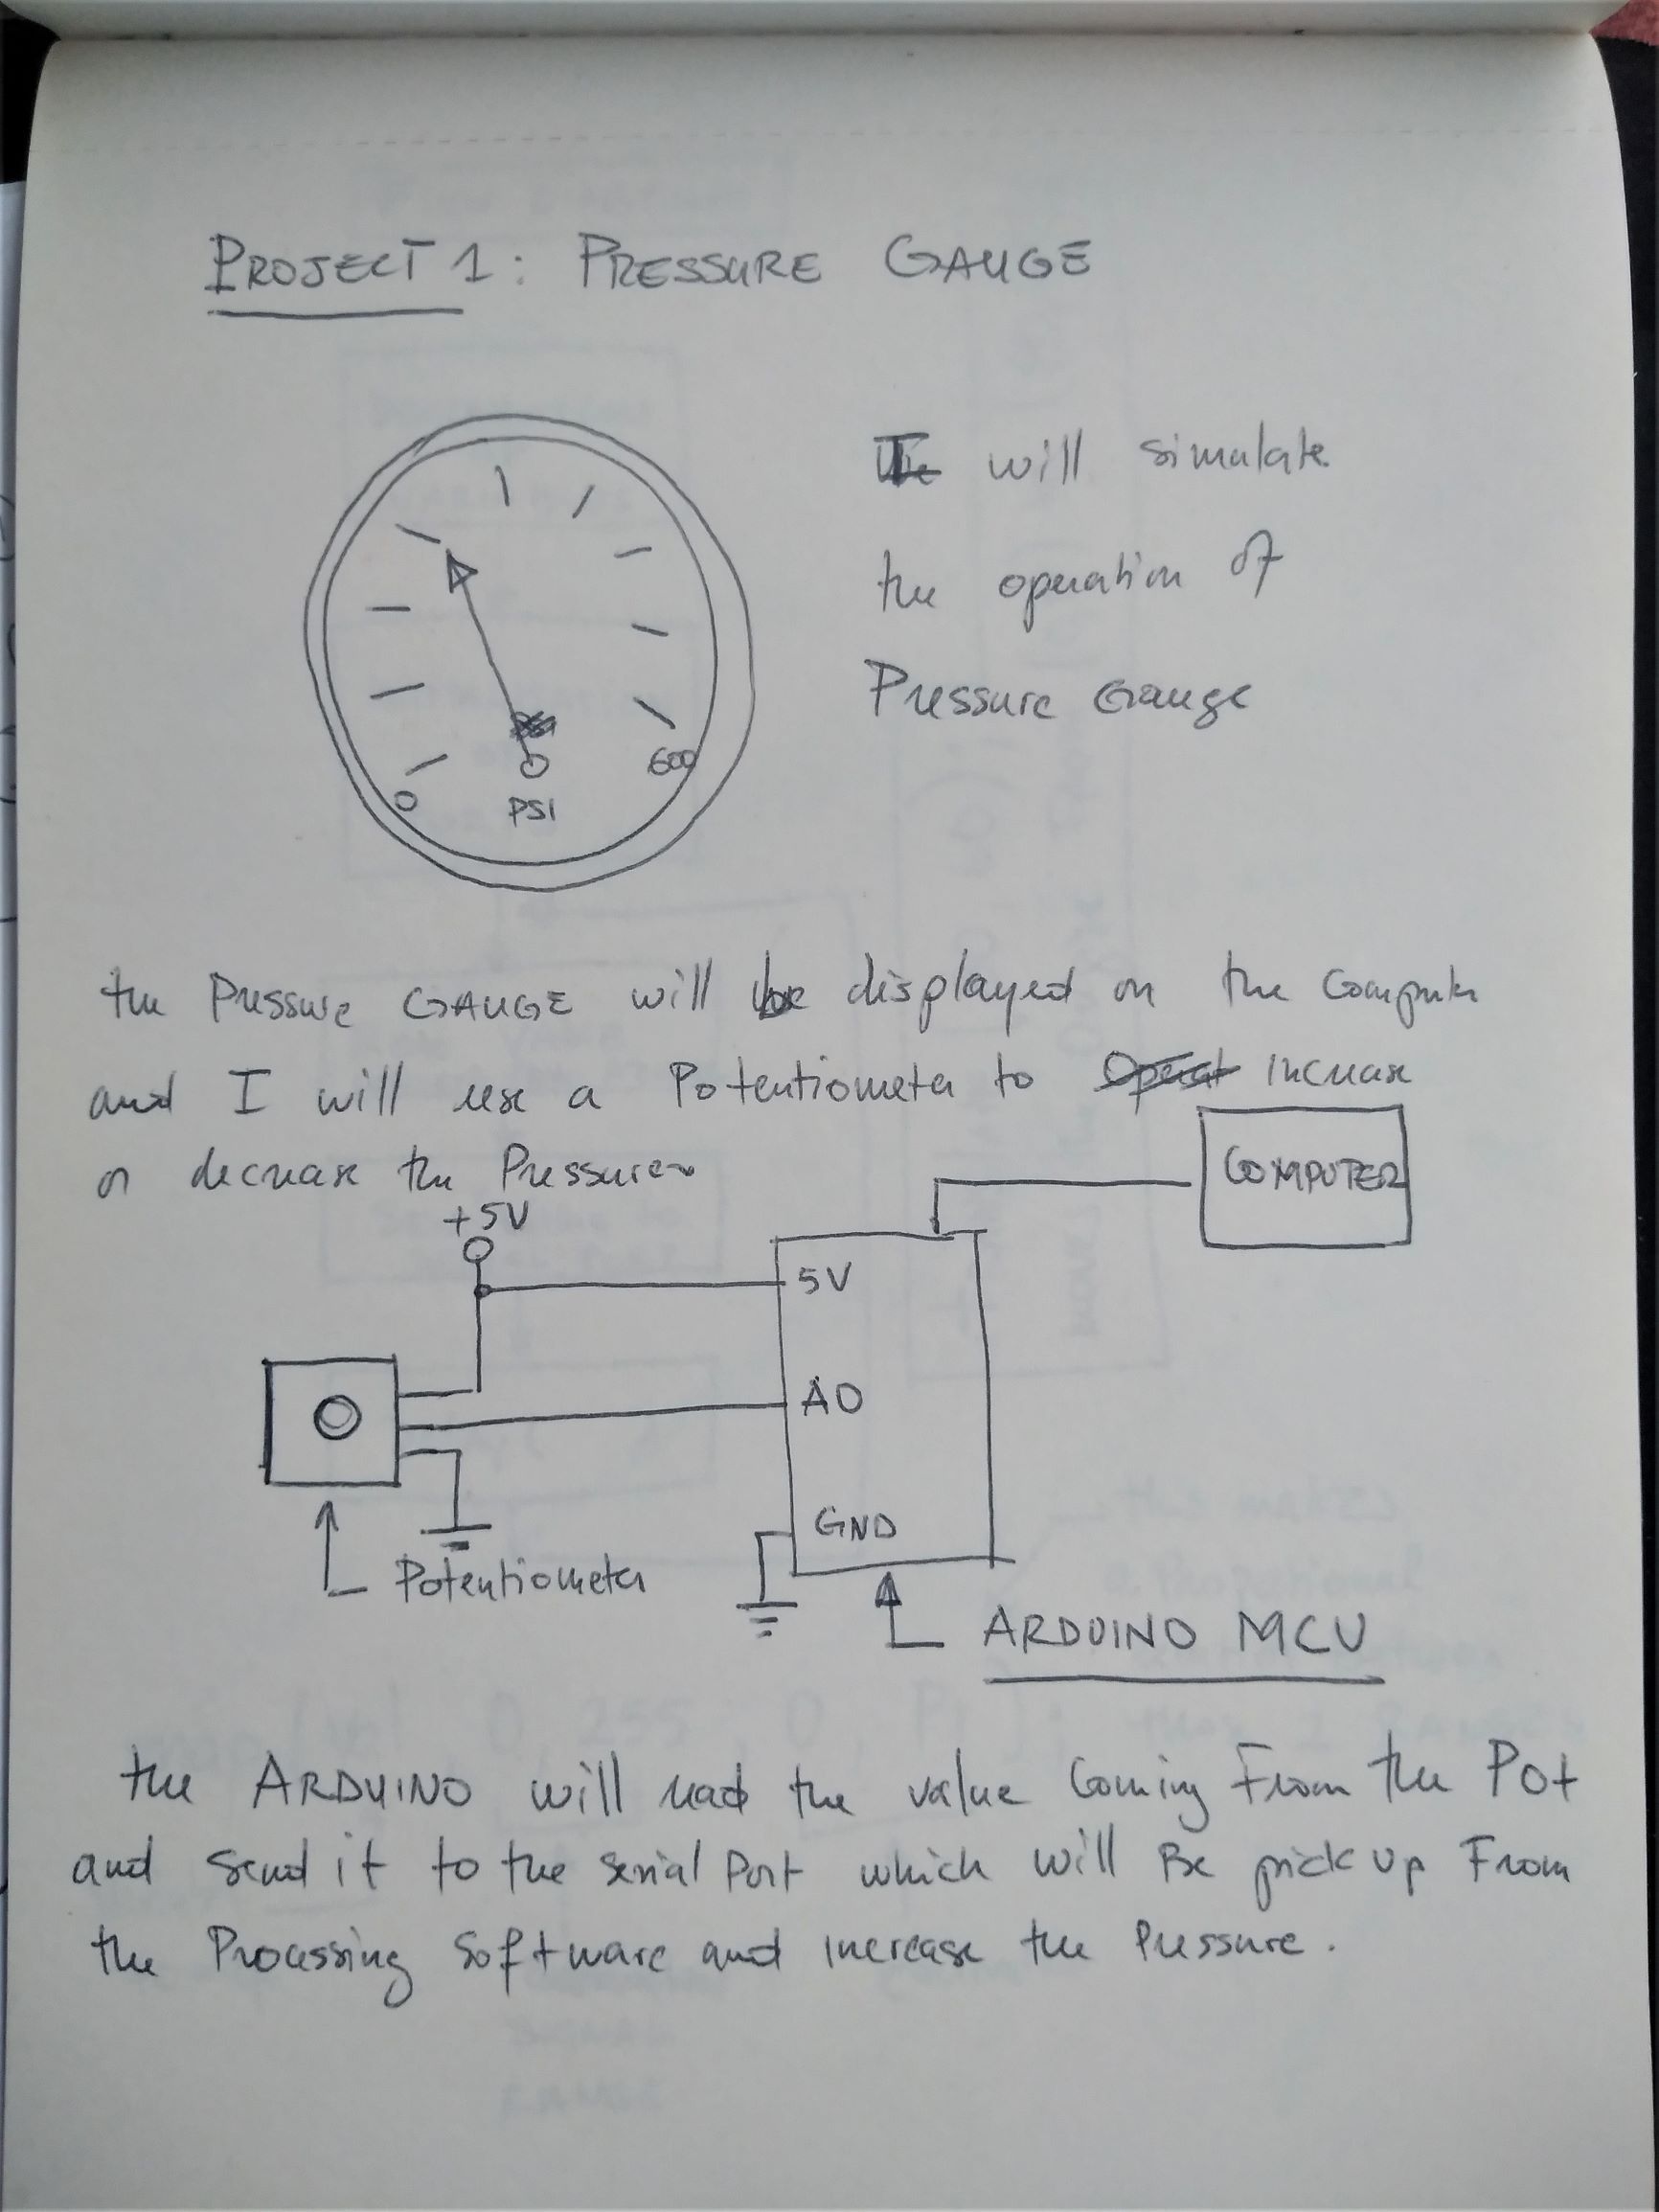 PROJECT 1: PRESSURE GAUGE
I will simulate
the operation of
Pressure Gauge
0
PSI
600
the Pressure GAUGE will be displayed on the Computer
and I will use a Potentiometer to Operat Increase
or decrease the Pressure
+5V
COMPUTER
5V
A0
GND
Potentiometer
ARDUINO MCU
the ARDUINO will read the value Coming From the Pot
and send it to the serial Port which will Be pick up From
the Processing Software and increase the Pressure.